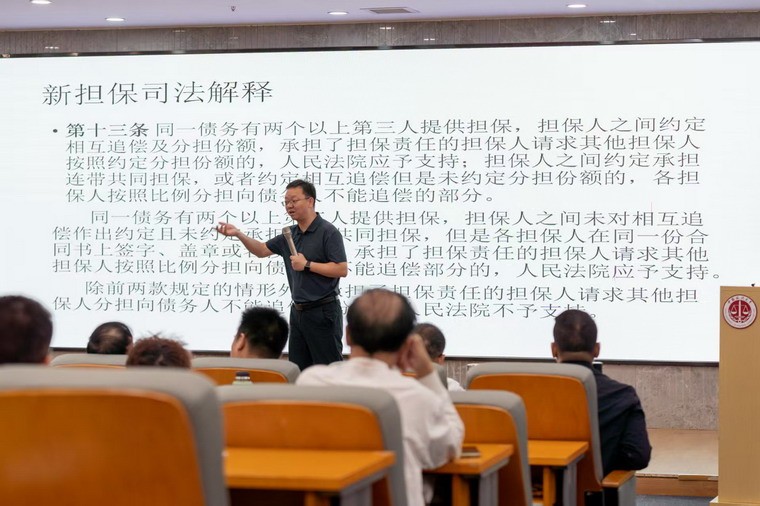 新担保司法解释
• 第十三条 同一债务有两个以上第三人提供担保，担保人之间约定
相互追偿及分担份额，承担了担保责任的担保人请求其他担保人
按照约定分担份额的，人民法院应予支持；担保人之间约定承担
连带共同担保，或者约定相互追偿但是未约定分担份额的，各担
保人按照比例分担向债务人不能追偿的部分。
同一债务有两个以上第三人提供担保，担保人之间未对相互追
偿作出约定且未约定承 共同担保，但是各担保人在同一份合
同书上签字、盖章或 承担了担保责任的担保人请求其他
担保人按照比例分担向债 不能追偿部分的，人民法院应予支持。
除前两款规定的情形外 承担了担保责任的担保人请求其他担
保人分担向债务人不能追偿 人民法院不予支持。